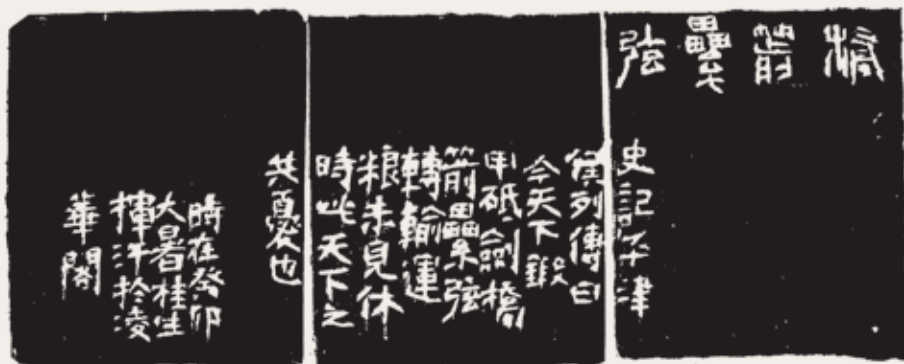 橋箭纍弦
史記平津
侯列傳曰
今天下鍛
甲砥劍橋
箭纍弦
轉輸運
粮未見休
時此天下之
共憂也
時在癸卯
大暑桂生
揮汗於淩
華閣